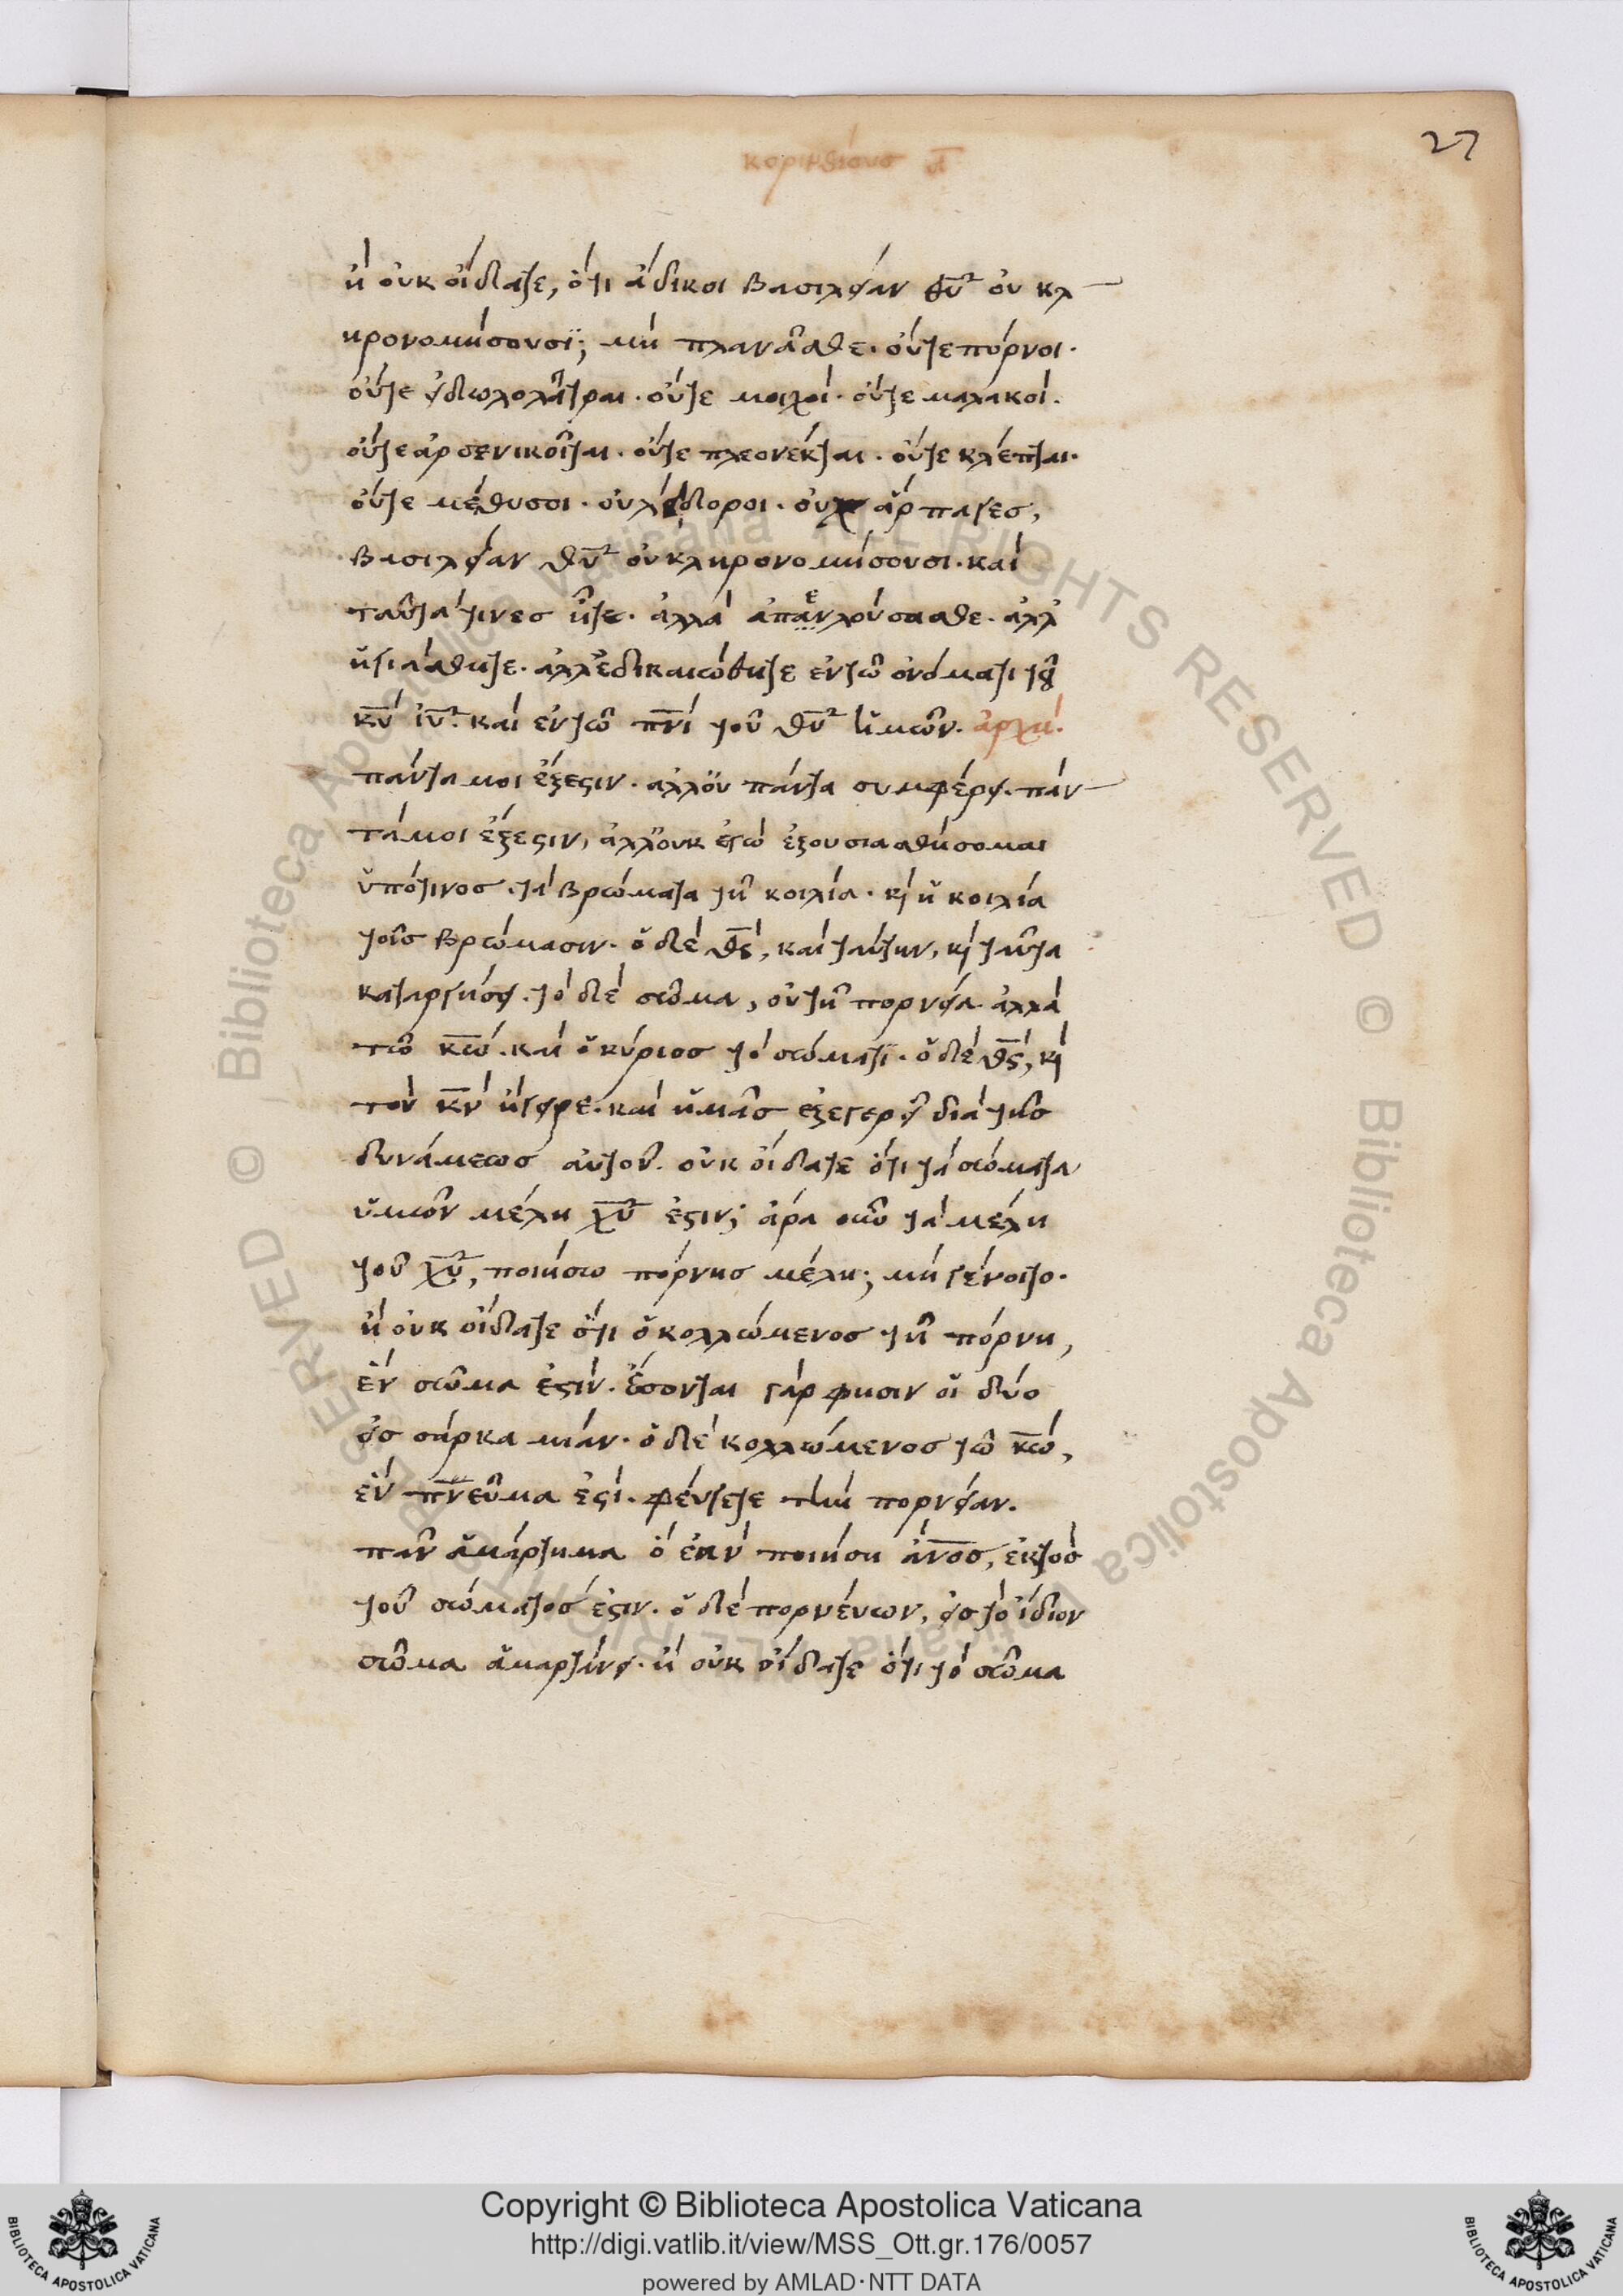 27
κορινθίους α
ἢ οὐκ οἴδατε, ὅτι ἄδικοι βασιλείαν θυ οὐ κλ
ηρονομήσουσϊ; μὴ πλανᾶσθε· οὔτε πόρνοι·
οὔτε εἰδωλολάτραι· οὔτε μοιχοὶ· οὔτε μαλακοί·
οὔτε ἀρσενικοῖται· οὔτε πλεονέκται· οὔτε κλέπται·
οὔτε μέθυσοι· οὐ λοίδοροι· οὐχ ἅρπαγες,
βασιλείαν θυ οὐ κληρονομήσουσι· καὶ
ταῦτα τινες ἦτε· ἀλλὰ ἀπελούσασθε· ἀλλ
ἡγιάσθητε· ἀλλ ἐδικαιώθητε ἐν τῶ ὀνόματι τοῦ
κυ ιυ· καὶ ἐν τῶ πνι τοῦ θυ ἡμῶν· ἀρχὴ·
πάντα μοι ἔξεστιν· ἀλλ οὐ πάντα συμφέρει· πάν
τά μοι ἔξεστιν, ἀλλ οὐκ ἐγὼ ἐξουσιασθήσομαι
ὑπό τινος· τὰ βρώματα τῆ κοιλία· κὶ ἡ κοιλία
τοῖς βρώμασιν· ὁ δὲ θς, καὶ ταύτην, κὶ ταῦτα
καταργήσει· τὸ δὲ σῶμα, οὐ τῆ πορνεία· ἀλλὰ
τῶ κω· καὶ ὁ κύριος τὸ σώματϊ· ὁ δὲ θς, κὶ
τὸν κν ἤγειρε· καὶ ἡμᾶς ἐξεγερεῖ διὰ τῆς
δυνάμεως αὐτοῦ· οὐκ οἴδατε ὅτι τὰ σώματα
ὑμῶν μέλη χυ ἐστιν; ἄρα οὖν τὰ μέλη
τοῦ χυ, ποιήσω πόρνης μέλη; μὴ γένοιτο·
ἢ οὐκ οἴδατε ὅτι ὁ κολλώμενος τῆ πόρνη,
ἓν σῶμα ἐστὶν· ἔσονται γάρ φησιν οἱ δύο
εἰς σάρκα μίαν· ὁ δὲ κολλώμενος τῶ κω,
ἓν πνεῦμα ἐστὶ· φεύγετε τὴν πορνείαν·
πᾶν ἁμάρτημα ὃ ἐὰν ποιήση ἄνος, ἐκτὸς
τοῦ σώματός ἐστιν· ὁ δὲ πορνεύων, εἰς τὸ ἴδιον
σῶμα ἁμαρτάνει· ἢ οὐκ οἴδατε ὅτι τὸ σῶμα
© Biblioteca Apostolica Vaticana ALL RIGHTS RESERVED © Biblioteca Apostolica Vaticana ALL RIGHTS RESERVED
BIBLIOTECA APOSTOLICA VATICANA
Copyright © Biblioteca Apostolica Vaticana
http://digi.vatlib.it/view/MSS_Ott.gr.176/0057
powered by AMLAD·NTT DATA
BIBLIOTECA APOSTOLICA VATICANA